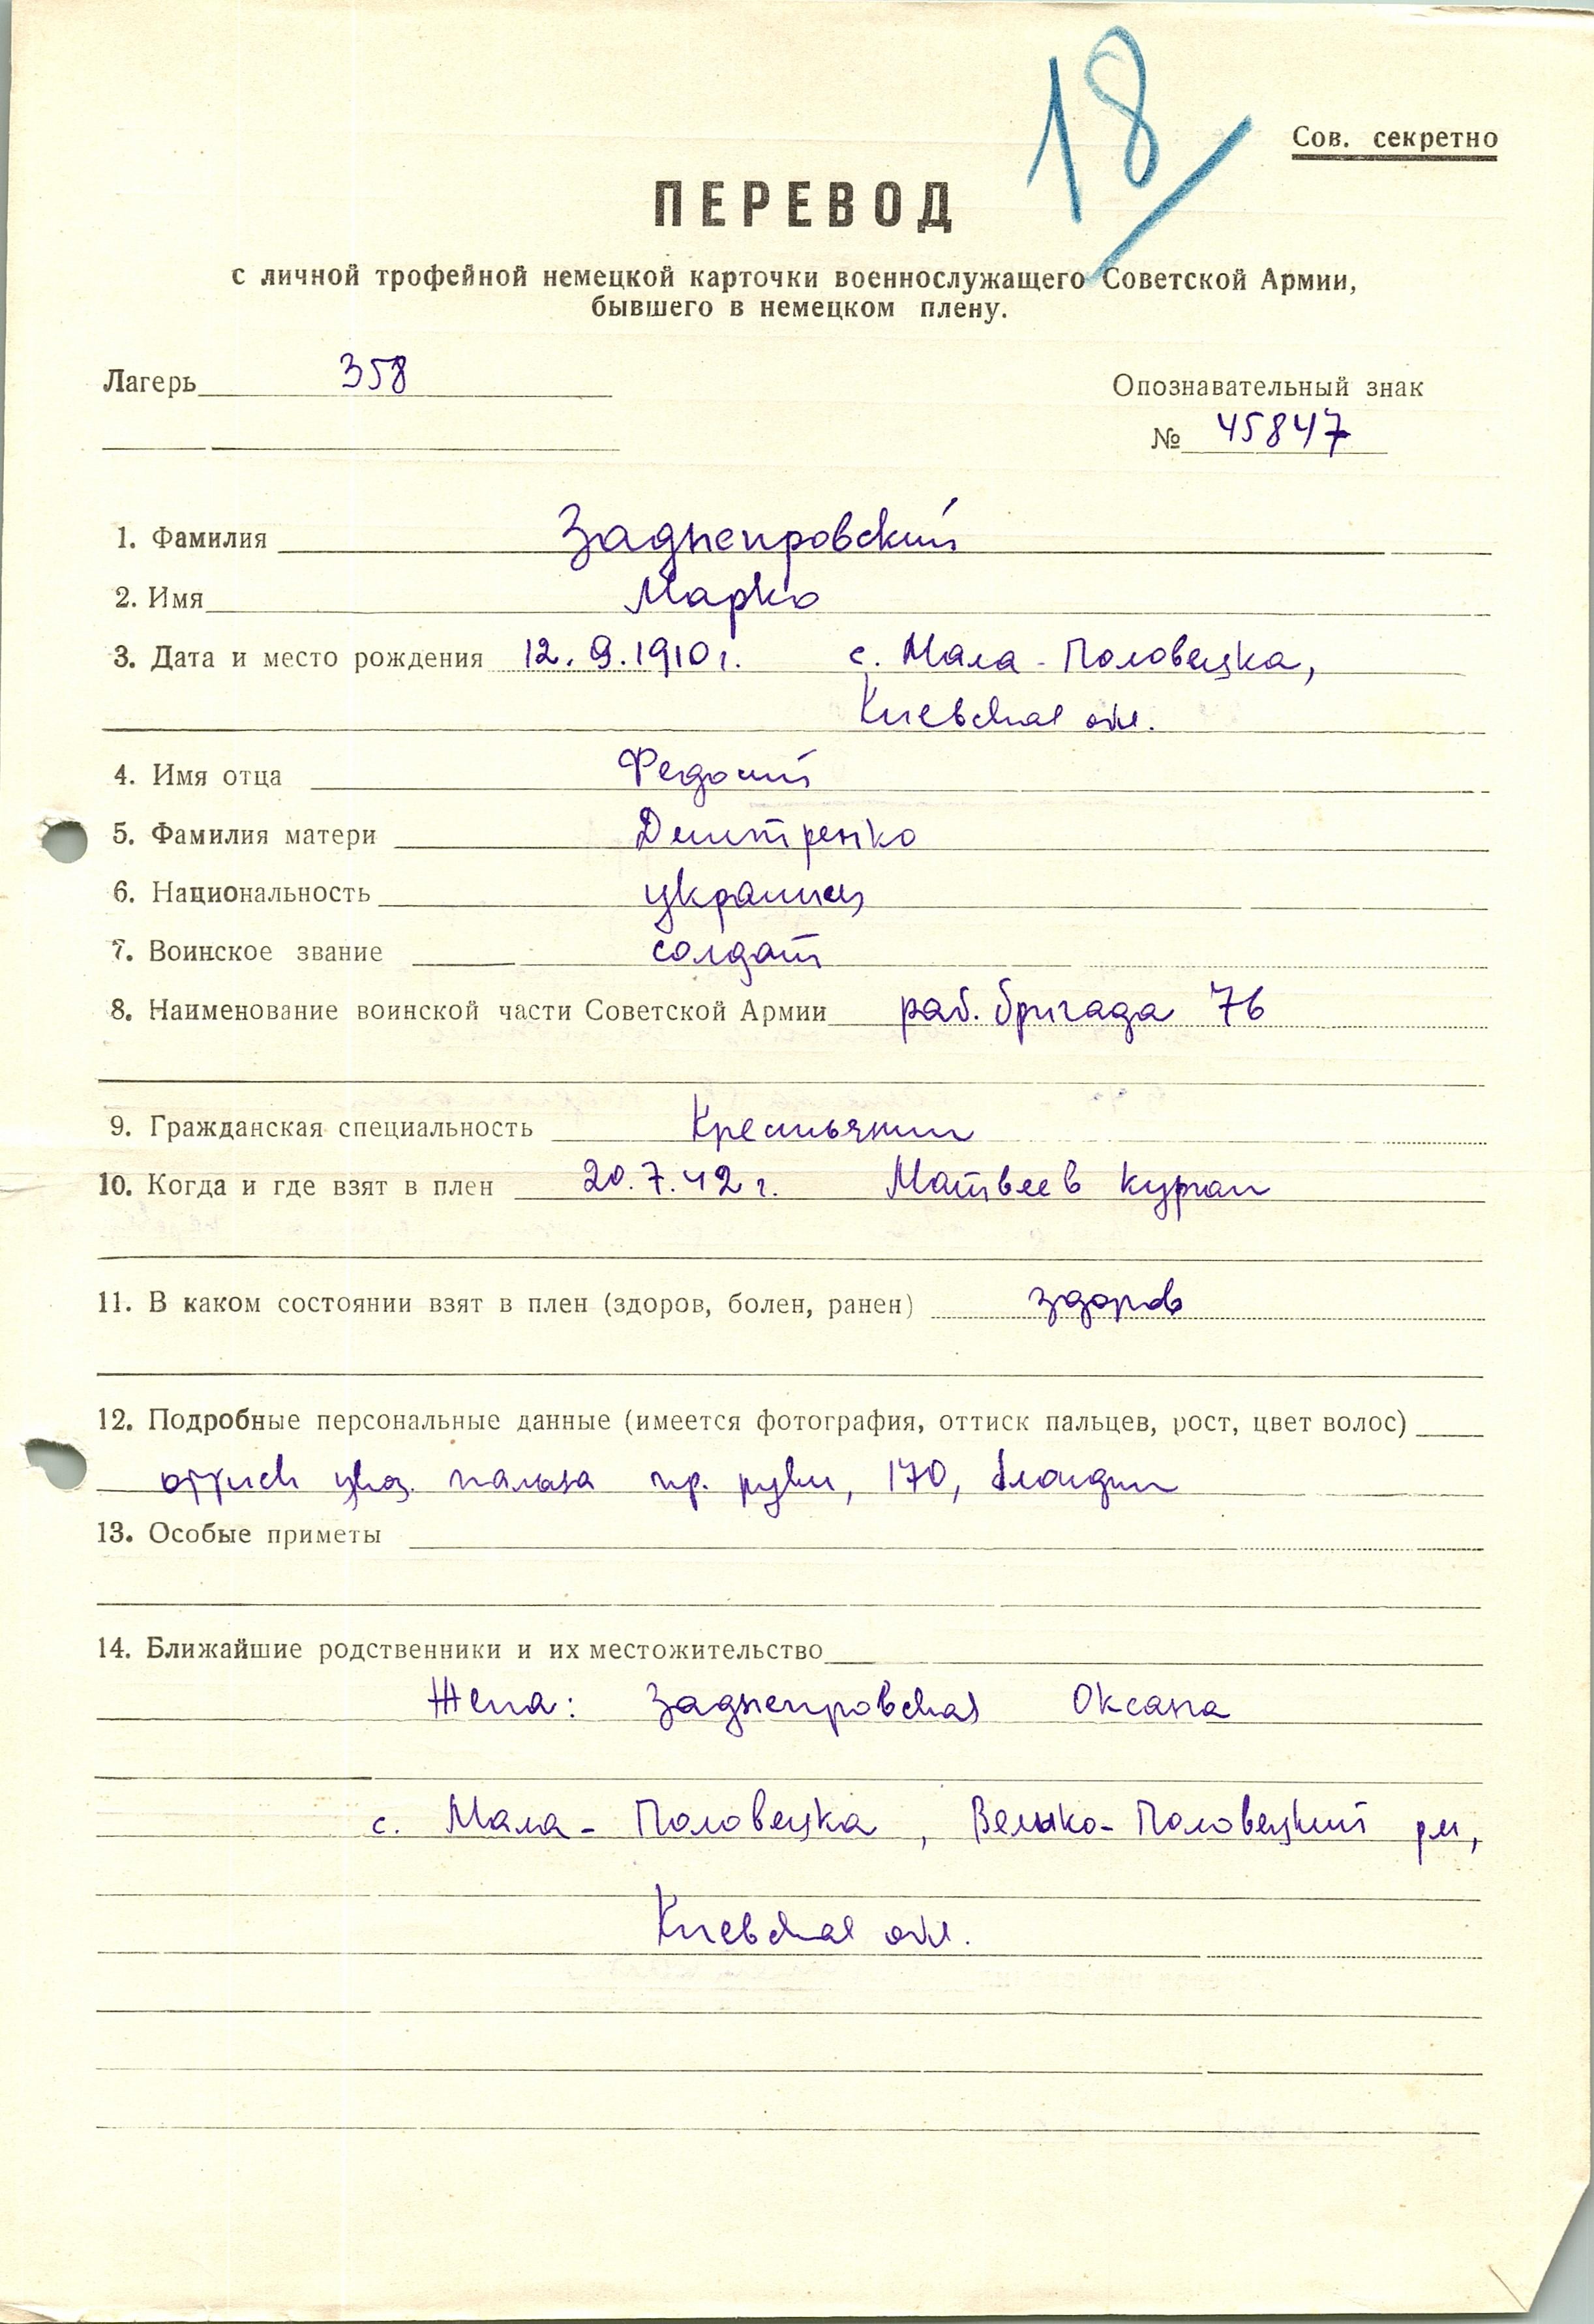 18
Сов. секретно
ПЕРЕВОД
с личной трофейной немецкой карточки военнослужащего Советской Армии,
бывшего в немецком плену.
Лагерь 358
Опознавательный знак
№ 45847
1. Фамилия Заднепровский
2. Имя Марко
3. Дата и место рождения 12.9.1910 г. с. Мала-Половецка,
Киевская обл.
4. Имя отца Федосий
5. Фамилия матери Дмитренко
6. Национальность украинец
7. Воинское звание солдат
8. Наименование воинской части Советской Армии раб. бригада 76
9. Гражданская специальность Крестьянин
10. Когда и где взят в плен 20.7.42 г. Матвеев Курган
11. В каком состоянии взят в плен (здоров, болен, ранен) здоров
12. Подробные персональные данные (имеется фотография, оттиск пальцев, рост, цвет волос)
оттиск указ. пальца пр. руки, 170, блондин
13. Особые приметы
14. Ближайшие родственники и их местожительство
Жена: Заднепровская Оксана
с. Мала-Половецка, Велико-Половецкий р-н,
Киевская обл.